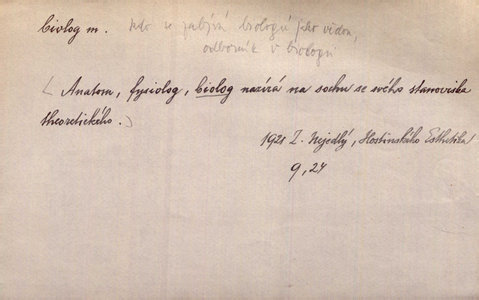 biolog m. kdo se zabývá biologií jako vědou,
odborník v biologii
(Anatom, fysiolog, biolog nazírá na sochu se svého stanoviska
theoretického.)
1921 Z. Nejedlý, Hostinského Esthetika
9, 24